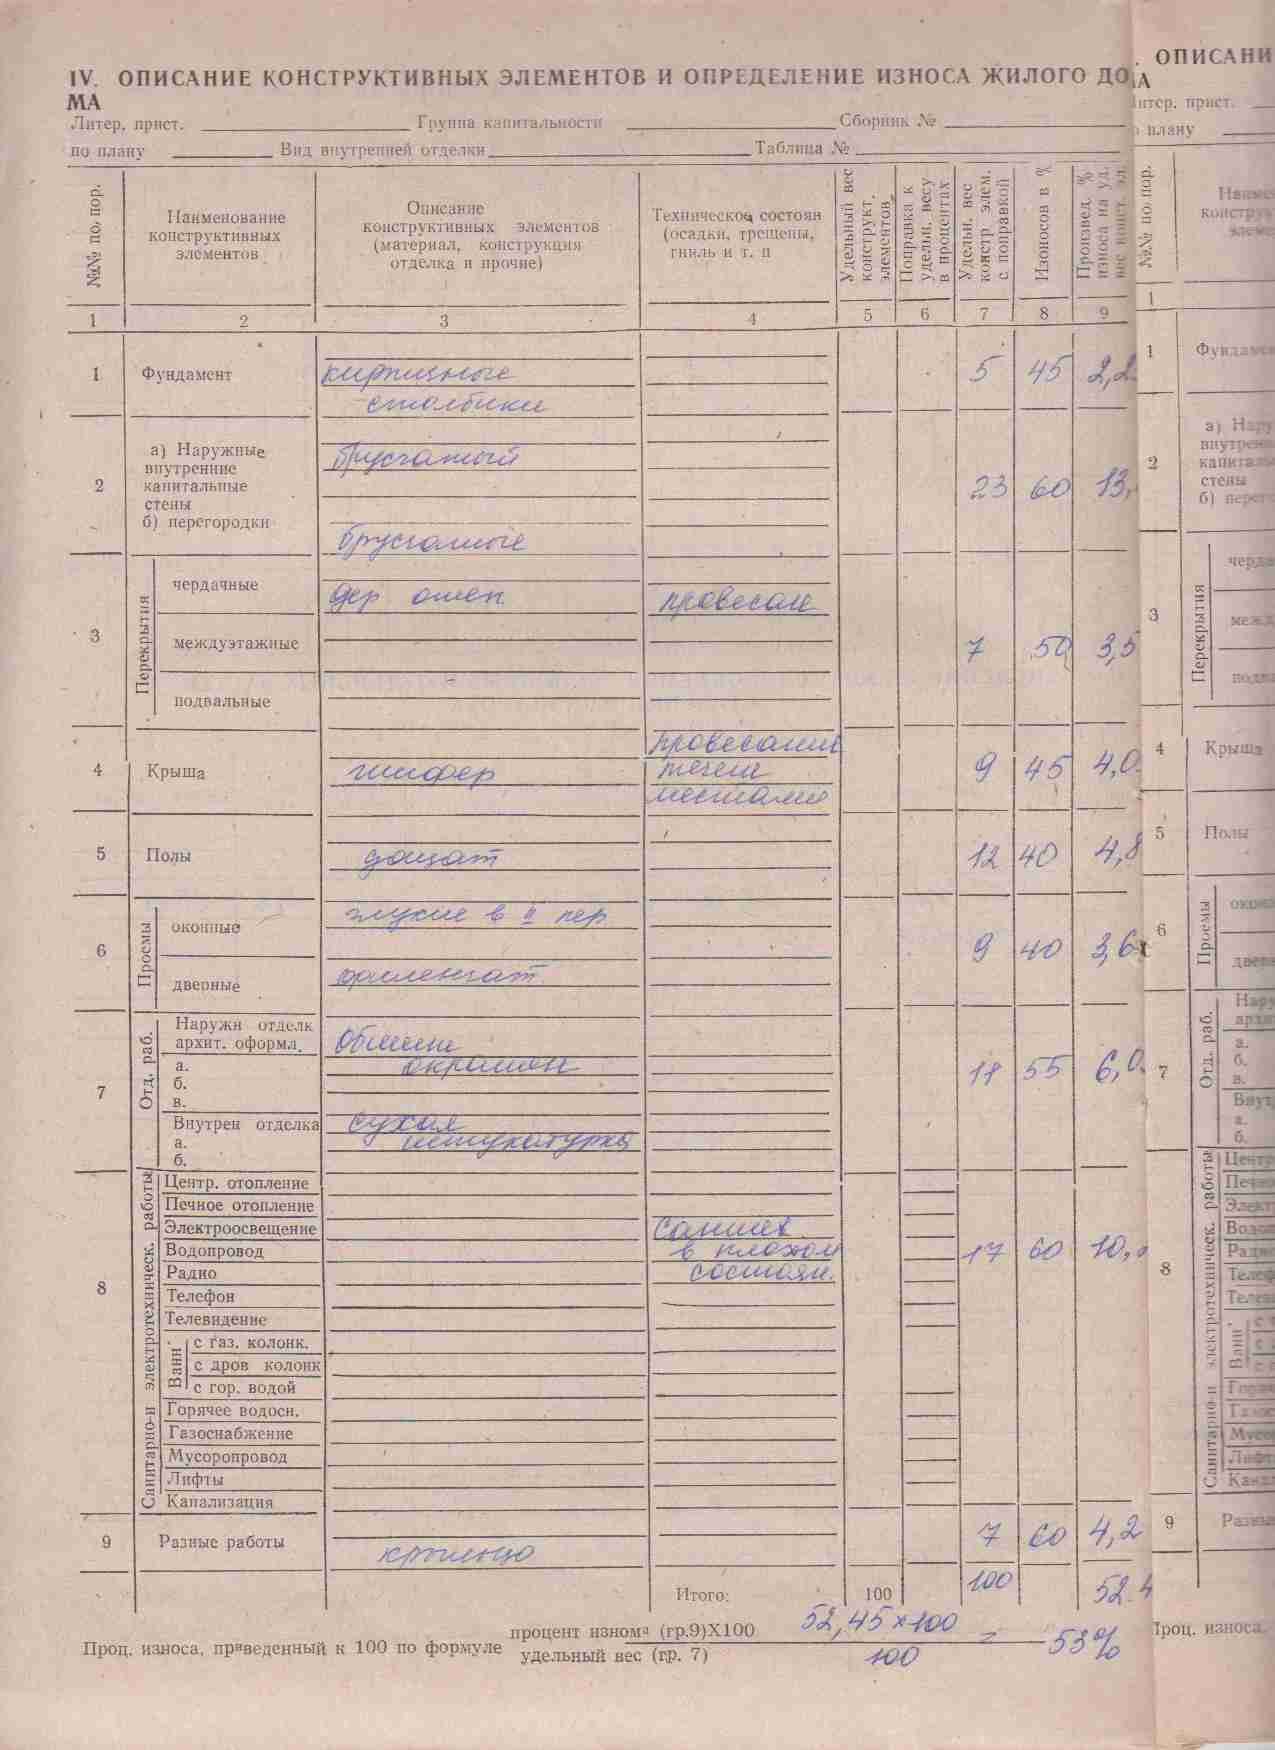 IV. ОПИСАНИЕ КОНСТРУКТИВНЫХ ЭЛЕМЕНТОВ И ОПРЕДЕЛЕНИЕ ИЗНОСА ЖИЛОГО ДО
МА
Литер, прист. Группа капитальности Сборник №
по плану Вид внутренней отделки Таблица №
№№ по/ пор.
Наименование
конструктивных
элементов
Описание
конструктивных элементов
(материал, конструкция
отделка и прочие)
Техническое состоян
(осадки, трещены,
гниль и т. п
Удельный вес
конструкт.
элементов
Поправка к
удельн. весу
в процентах
Удельн. вес
констр элем.
с поправкой
Изоносов в %
Произвед. %
износа на уд.
вес конст. эл.
1 2 3 4 5 6 7 8 9
1 Фундамент кирпичные 5 45 2,2
столбики
2
а) Наружные
внутренние
капитальные
стены
б) перегородки
брусчатый
брусчатые
23 60 13,
3 Перекрытия
чердачные дер отеп провесан
междуэтажные 7 50 3,5
подвальные
4 Крыша шифер
провесание
течет
местами
9 45 4,0
5 Полы дощат 12 40 4,8
6 Проемы
оконные глухие в II пер
9 40 3,6
дверные филенчат
7 Отд. раб.
Наружн отделк
архит. оформл. обшит
а. окрашен
б.
в.
11 55 6,0
Внутрен отделка сухая
а. штукатурка
б.
8 Санитарно-и электротехническ. работы
Центр. отопление
Печное отопление
Электроосвещение
Водопровод в плохом 17 60 10,
Радио состоян.
Телефон
Телевидение
Ванн.
с газ. колонк.
с дров колонк
с гор. водой
Горячее водосн.
Газоснабжение
Мусоропровод
Лифты
Канализация
9 Разные работы крыльцо 7 60 4,2
Итого: 100 100 52.4
Проц. износа, приведенный к 100 по формуле
процент износа (гр.9)X100
удельный вес (гр. 7)
52,45 × 100
100
= 53%
ОПИСАНИ
МА
Литер, прист.
по плану
№№ по/ пор.
Наимен
конструк
элемен
1
1 Фундамен
2
а) Нару
внутренн
капиталь
стены
б) перего
3 Перекрытия
черда
меж
подва
4 Крыша
5 Полы
6 Проемы
окон
двер
7 Отд. раб.
Нару
архи
а.
б.
в.
Внут
а.
б.
8 Санитарно-и электротехническ. работы
Центр
Печно
Элек
Водо
Радио
Телеф
Телев
Ванн.
с
с
с
Горяч
Газос
Мусо
Лифт
Канал
9 Разны
Проц. износа,